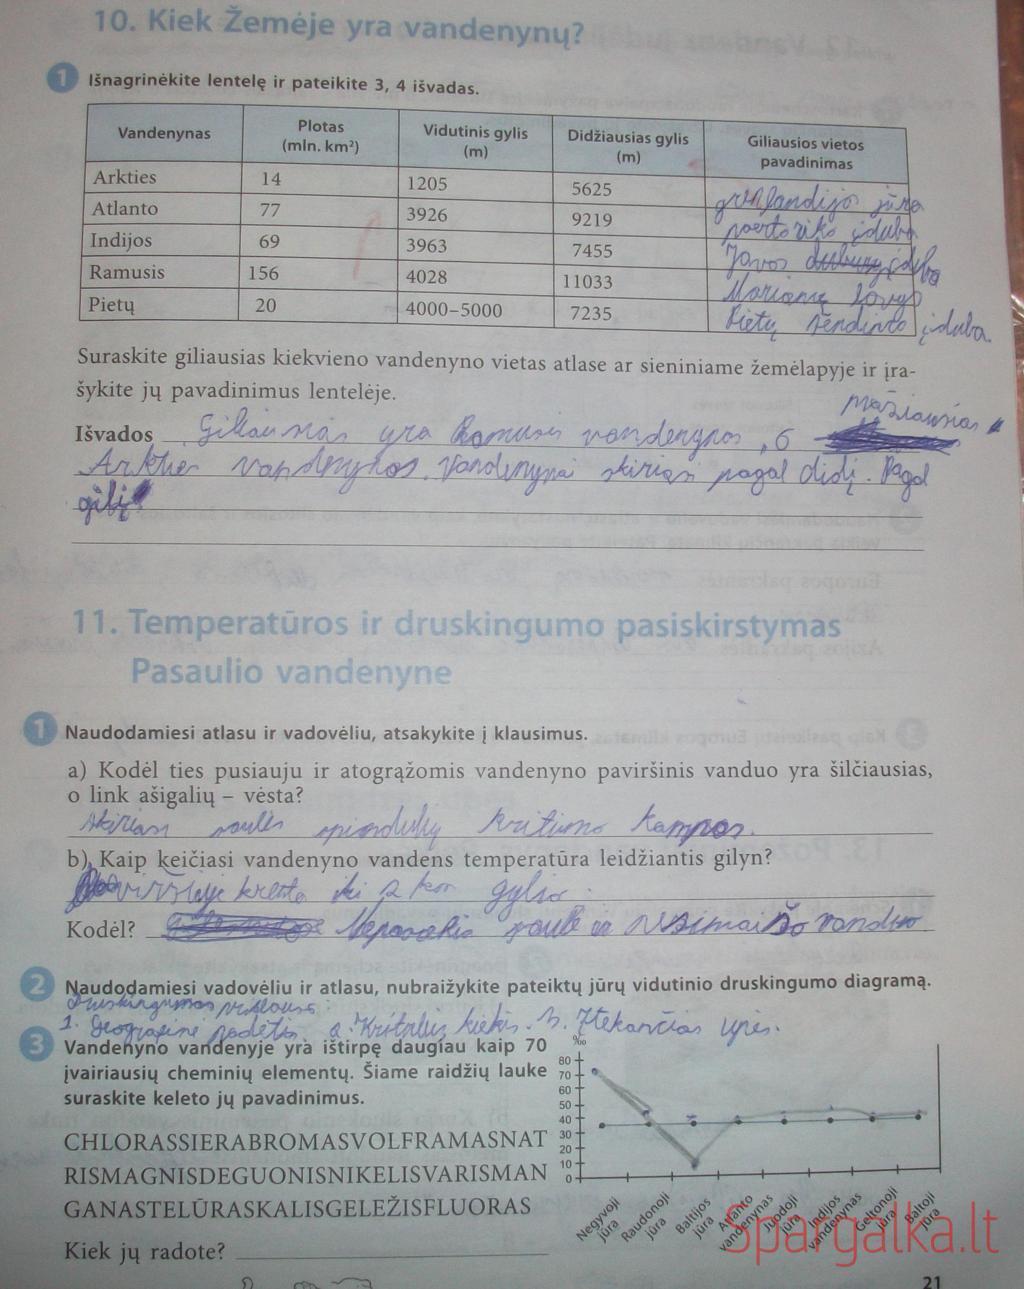 10. Kiek Žemėje yra vandenynų?
1 Išnagrinėkite lentelę ir pateikite 3, 4 išvadas.
Vandenynas Plotas (mln. km²) Vidutinis gylis (m) Didžiausias gylis (m) Giliausios vietos pavadinimas
Arkties 14 1205 5625 grenlandijos jūra
Atlanto 77 3926 9219 puertoriko įduba
Indijos 69 3963 7455 Javos įduba
Ramusis 156 4028 11033 Marianų lovys
Pietų 20 4000–5000 7235 Pietų sendinto įduba.
Suraskite giliausias kiekvieno vandenyno vietas atlase ar sieniniame žemėlapyje ir įra-
šykite jų pavadinimus lentelėje.
mažiausias
Išvados Giliausias yra Ramusis vandenynas, o
Arkties vandenynas. Vandenynai skiriasi pagal didį. Pagal
gilį
11. Temperatūros ir druskingumo pasiskirstymas
Pasaulio vandenyne
1 Naudodamiesi atlasu ir vadovėliu, atsakykite į klausimus.
a) Kodėl ties pusiauju ir atogrąžomis vandenyno paviršinis vanduo yra šilčiausias,
o link ašigalių – vėsta?
skiriasi saulės spindulių kritimo kampas.
b) Kaip keičiasi vandenyno vandens temperatūra leidžiantis gilyn?
paviršiuje krenta iki 2 km gylio.
Kodėl? Nepasiekia saulė ir nesimaišo vanduo
2 Naudodamiesi vadovėliu ir atlasu, nubraižykite pateiktų jūrų vidutinio druskingumo diagramą.
Druskingumas priklauso:
1. Geografinė padėtis. 2. Kritulių kiekis. 3. Ištekančias upės.
3 Vandenyno vandenyje yra ištirpę daugiau kaip 70
įvairiausių cheminių elementų. Šiame raidžių lauke
suraskite keleto jų pavadinimus.
CHLORASSIERABROMASVOLFRAMASNAT
RISMAGNISDEGUONISNIKELISVARISMAN
GANASTELŪRASKALISGELEŽISFLUORAS
Kiek jų radote?
‰
80
70
60
50
40
30
20
10
0
Negyvoji jūra
Raudonoji jūra
Baltijos jūra
Atlanto vandenynas
Juodoji jūra
Indijos vandenynas
Geltonoji jūra
Baltoji jūra
Spargalka.lt
21